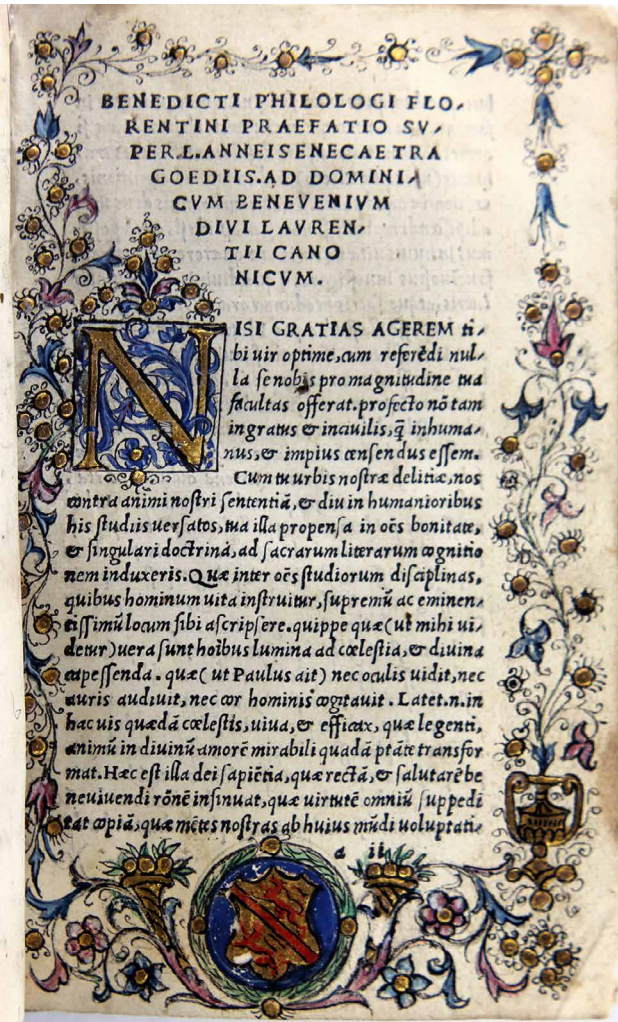 BENEDICTI PHILOLOGI FLO,
RENTINI PRAEFATIO SV,
PER.L.ANNEI SENECAE TRA
GOEDIIS.AD DOMINI,
CVM BENEVENIVM
DIVI LAVREN,
TII CANO
NICVM.
NISI GRATIAS AGEREM ti,
bi uir optime,cum referẽdi nul,
la se nobis pro magnitudine tua
facultas offerat.profecto nõ tam
ingratus & inciuilis,q̃ inhuma,
nus,& impius censendus essem.
Cum tu urbis nostræ delitiæ,nos
contra animi nostri sententiã,& diu in humanioribus
his studiis uersatos,tua illa propensa in oẽs bonitate,
& singulari doctrina,ad sacrarum literarum cognitio
nem induxeris.Quæ inter oẽs studiorum disciplinas,
quibus hominum uita instruitur,supremũ ac eminen,
tissimũ locum sibi ascripsere.quippe quæ(ut mihi ui,
detur)uera sunt hoĩbus lumina ad cœlestia,& diuina
capessenda.quæ(ut Paulus ait)nec oculis uidit,nec
auris audiuit,nec cor hominis cogitauit.Latet.n.in
hac uis quædã cœlestis,uiua,& efficax,quæ legenti,
animũ in diuinũ amorẽ mirabili quadã ptãte transfor
mat.Hæc est illa dei sapiẽtia,quæ rectã,& salutarẽ be
ne uiuendi rõnẽ insinuat,quæ uirtutẽ omniũ suppedi
tat copiã,quæ mẽtes nostras ab huius mũdi uoluptati,
a ii